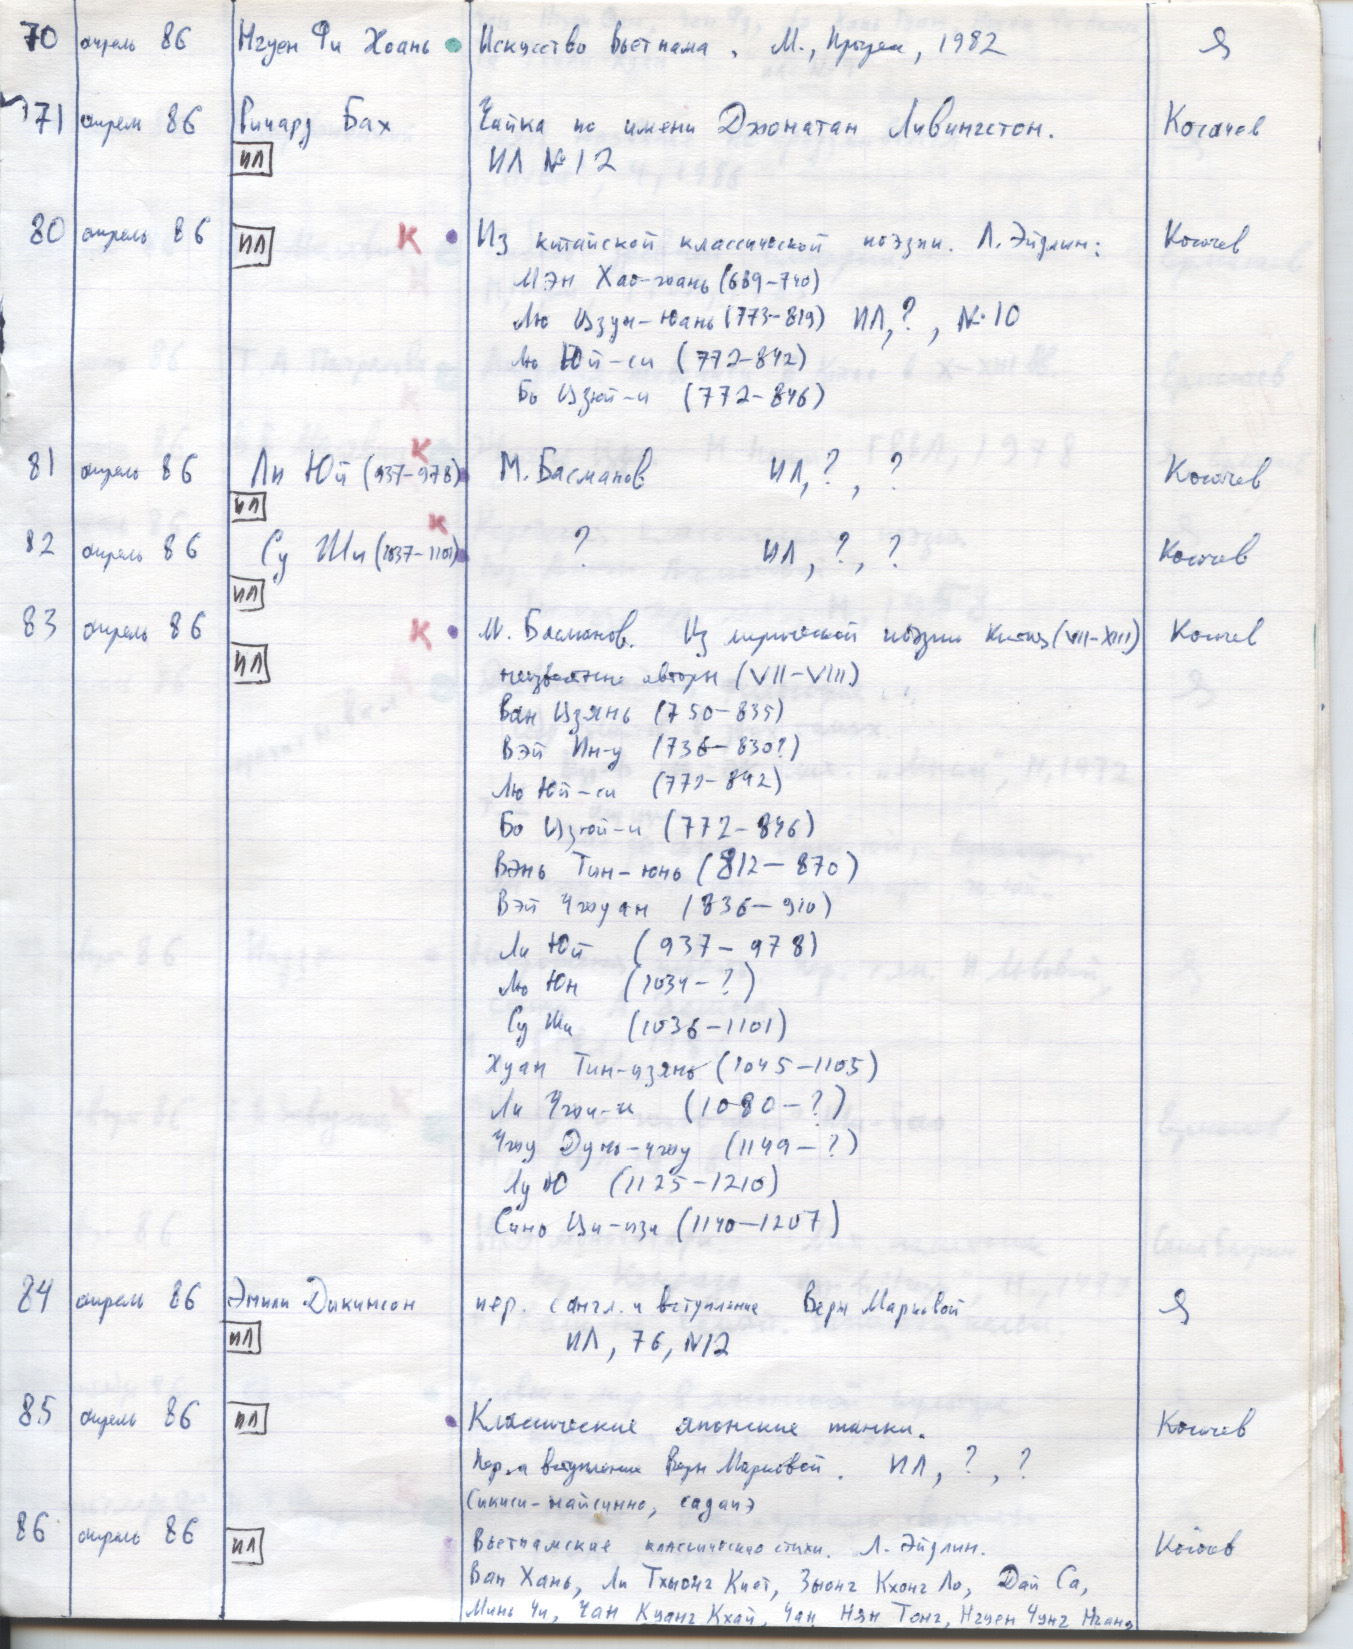 70 апрель 86 Нгуен Фи Хоань Искусство Вьетнама. М., Прогресс, 1982 Я
71 апрель 86 Ричард Бах Чайка по имени Джонатан Ливингстон. Косачев
ИЛ ИЛ №12
80 апрель 86 ИЛ К Из китайской классической поэзии. Л. Эйдлин: Косачев
Мэн Хао-жань (689-740)
Лю Цзун-Юань (773-819) ИЛ, ?, №10
Лю Юй-си (772-842)
Бо Цзюй-и (772-846)
К
81 апрель 86 Ли Юй (937-978) М. Басманов ИЛ, ?, ? Косачев
ИЛ
К
82 апрель 86 Су Ши (1037-1101) ? ИЛ, ?, ? Косачев
ИЛ
83 апрель 86 К М. Басманов. Из лирической поэзии Китая (VII-XIII) Косачев
ИЛ
неизвестные авторы (VII-VIII)
Ван Цзянь (750-835)
Вэй Ин-у (736-830?)
Лю Юй-си (772-842)
Бо Цзюй-и (772-846)
Вэнь Тин-юнь (812-870)
Вэй Чжуан (836-910)
Ли Юй (937-978)
Лю Юн (1034-?)
Су Ши (1036-1101)
Хуан Тин-цзянь (1045-1105)
Ли Чжи-и (1080-?)
Чжу Дунь-чжу (1149-?)
Лу Ю (1125-1210)
Синь Ци-цзи (1140-1207)
84 апрель 86 Эмили Дикинсон пер. с англ. и вступление Веры Марковой Я
ИЛ ИЛ, 76, №12
85 апрель 86 ИЛ Классические японские танки. Косачев
Пер. и вступление Веры Марковой. ИЛ, ?, ?
Сикиси-найсинно, садаиэ
86 апрель 86 ИЛ Вьетнамские классические стихи. Л. Эйдлин. Косачев
Ван Хань, Ли Тхыонг Киет, Зыонг Кхонг Ло, Дай Са,
Минь Чи, Чан Куанг Кхай, Чан Нян Тонг, Нгуен Чунг Нгань